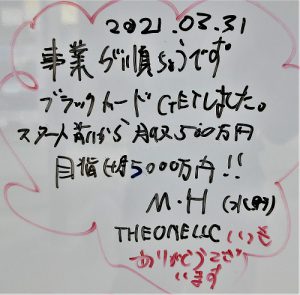 2021.03.31
事業が順ちょうです。
ブラックカードGETしました。
スタート前から月収500万円
目指せ月5000万円!!
M・H
THEONELLC いつも
ありがとうござ
います